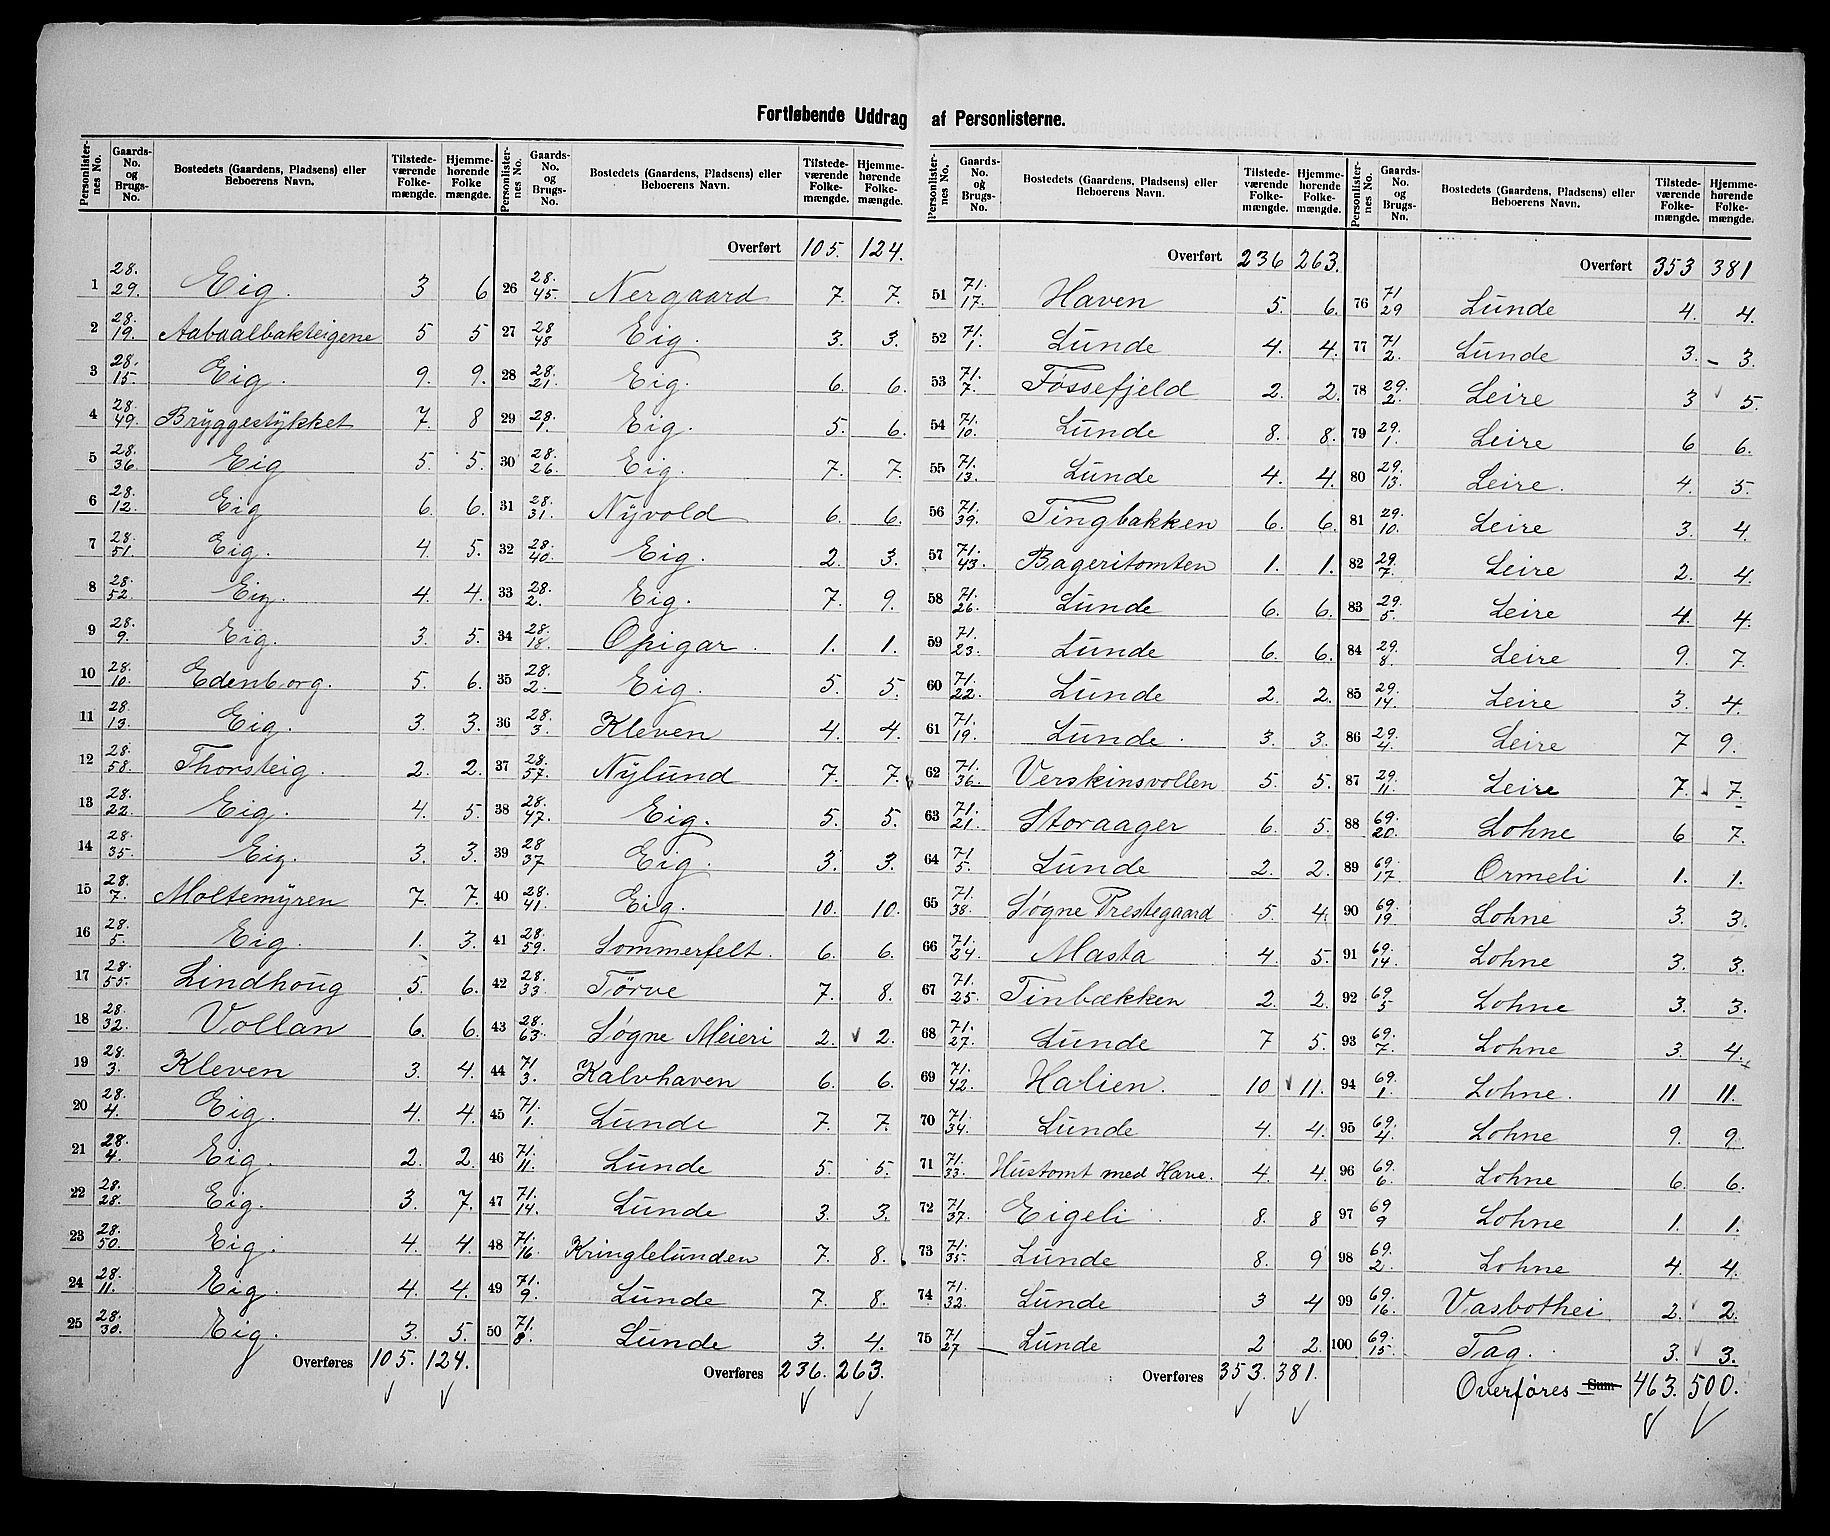 Fortløbende Uddrag af Personlisterne.
Personlister-nes No. Gaards-No. og Brugs-No. Bostedets (Gaardens, Pladsens) eller Beboerens Navn. Tilstede-værende Folke-mængde. Hjemme-hørende Folke-mængde.
1 28./29. Eig. 3 6
2 28./19. Aabaalbakteigene 5 5
3 28./15. Eig. 9. 9.
4 28./49. Bryggestykket 7. 8
5 28./36 Eig 5. 5.
6 28./12. Eig 6. 6.
7 28./51. Eig. 4 5.
8 28./52 Eig. 4. 4.
9 28./9. Eig. 3. 5.
10 28./10. Edenborg. 5. 6.
11 28./13. Eig. 3. 3.
12 28./58. Thorsteig. 2. 2.
13 28./22. Eig. 4. 5.
14 28./35. Eig. 3. 3.
15 28./7. Moltemyren 7. 7.
16 28./5. Eig. 1. 3.
17 28./55. Lindhoug 5. 6.
18 28./32. Vollan 6. 6.
19 28./3. Kleven 3. 4.
20 28./4. Eig. 4. 4.
21 28./4. Eig. 2. 2.
22 28./28. Eig. 3. 7.
23 28./50. Eig. 4. 4.
24 28./11. Eig. 4. 4.
25 28./30. Eig. 3. 5.
Overføres 105. 124.
Personlister-nes No. Gaards-No. og Brugs-No. Bostedets (Gaardens, Pladsens) eller Beboerens Navn. Tilstede-værende Folke-mængde. Hjemme-hørende Folke-mængde.
Overført 105. 124.
26 28./45. Nergaard 7. 7.
27 28/48 Eig. 3. 3.
28 28./21. Eig. 6 6.
29 28./1. Eig. 5. 6.
30 28./26. Eig. 7. 7.
31 28./31. Nyvold 6. 6.
32 28./40. Eig. 2. 3.
33 28./2. Eig. 7. 9.
34 28./18. Opigar. 1. 1.
35 28./2. Eig. 5. 5.
36 28./3. Kleven 4. 4.
37 28./57. Nylund 7. 7.
38 28./47. Eig. 5. 5.
39 28/37 Eig. 3. 3.
40 28./41. Eig. 10. 10.
41 28./59. Sommerfelt. 6. 6.
42 28./33. Törve 7. 8.
43 28./63. Søgne Meieri 2. 2.
44 71/3. Kalvhaven 6. 6.
45 71./1. Lunde 7. 7.
46 71./11. Lunde 5. 5.
47 71./14. Lunde 3. 3.
48 71./16. Kringlelunden 7. 8.
49 71./9. Lunde 7. 8.
50 71./8. Lunde 3. 4.
Overføres 236. 263.
Personlister-nes No. Gaards-No. og Brugs-No. Bostedets (Gaardens, Pladsens) eller Beboerens Navn. Tilstede-værende Folke-mængde. Hjemme-hørende Folke-mængde.
Overført 236 263.
51 71./17. Haven 5. 6.
52 71./1. Lunde 4. 4.
53 71./7. Fossefjeld 2. 2.
54 71./10. Lunde 8. 8.
55 71./13. Lunde 4. 4.
56 71./39. Tingbakken 6. 6.
57 71./43. Bageritomten 1. 1.
58 71./26. Lunde 6. 6.
59 71./23. Lunde 6. 6.
60 71./22. Lunde 2. 2.
61 71./19. Lunde. 3. 3.
62 71./36. Verskinsvollen 5. 5.
63 71./21. Storaager 6. 5.
64 71/5. Lunde 2. 2.
65 71./38. Søgne Prestegaard 5. 4.
66 71./24. Masta 4. 5.
67 71./25. Tinbækken 2. 2.
68 71./27. Lunde 7 5.
69 71./42. Halien. 10 11.
70 71./34. Lunde 4. 4.
71 71./33. Hustomt med Have. 4. 4.
72 71./37. Eigeli. 8. 8
73 71./35. Lunde 8. 9
74 71./32. Lunde 3 4
75 71/27 Lunde 2 2.
Overføres 353. 381.
Personlister-nes No. Gaards-No. og Brugs-No. Bostedets (Gaardens, Pladsens) eller Beboerens Navn. Tilstede-værende Folke-mængde. Hjemme-hørende Folke-mængde.
Overført 353 381
76 71/29 Lunde 4. 4.
77 71/2. Lunde 3. 3.
78 29./2. Leire 3 5.
79 29./1. Leire 6 6.
80 29./13. Leire. 4. 5.
81 29./10. Leire 3. 4.
82 29./7. Leire 2. 4.
83 29./5. Leire 4. 4.
84 29./8. Leire 9. 7.
85 29./14. Leire 3. 4.
86 29./4. Leire 7 9.
87 29./11. Leire 7. 7.
88 69./20. Lohne 6 7.
89 69./17. Ormeli 1. 1.
90 69./19 Lohne 3. 3.
91 69./14. Lohne 3. 3.
92 69./5 Lohne 3. 3.
93 69./7. Lohne 3. 4.
94 69./1. Lohne. 11 11.
95 69./4. Lohne 9. 9.
96 69./6. Lohne 6. 6.
97 69/9 Lohne 1. 1.
98 69./2. Lohne 4. 4.
99 69./16. Vasbothei 2. 2.
100 69./15. Tag. 3. 3.
Overføres Sum 463. 500.